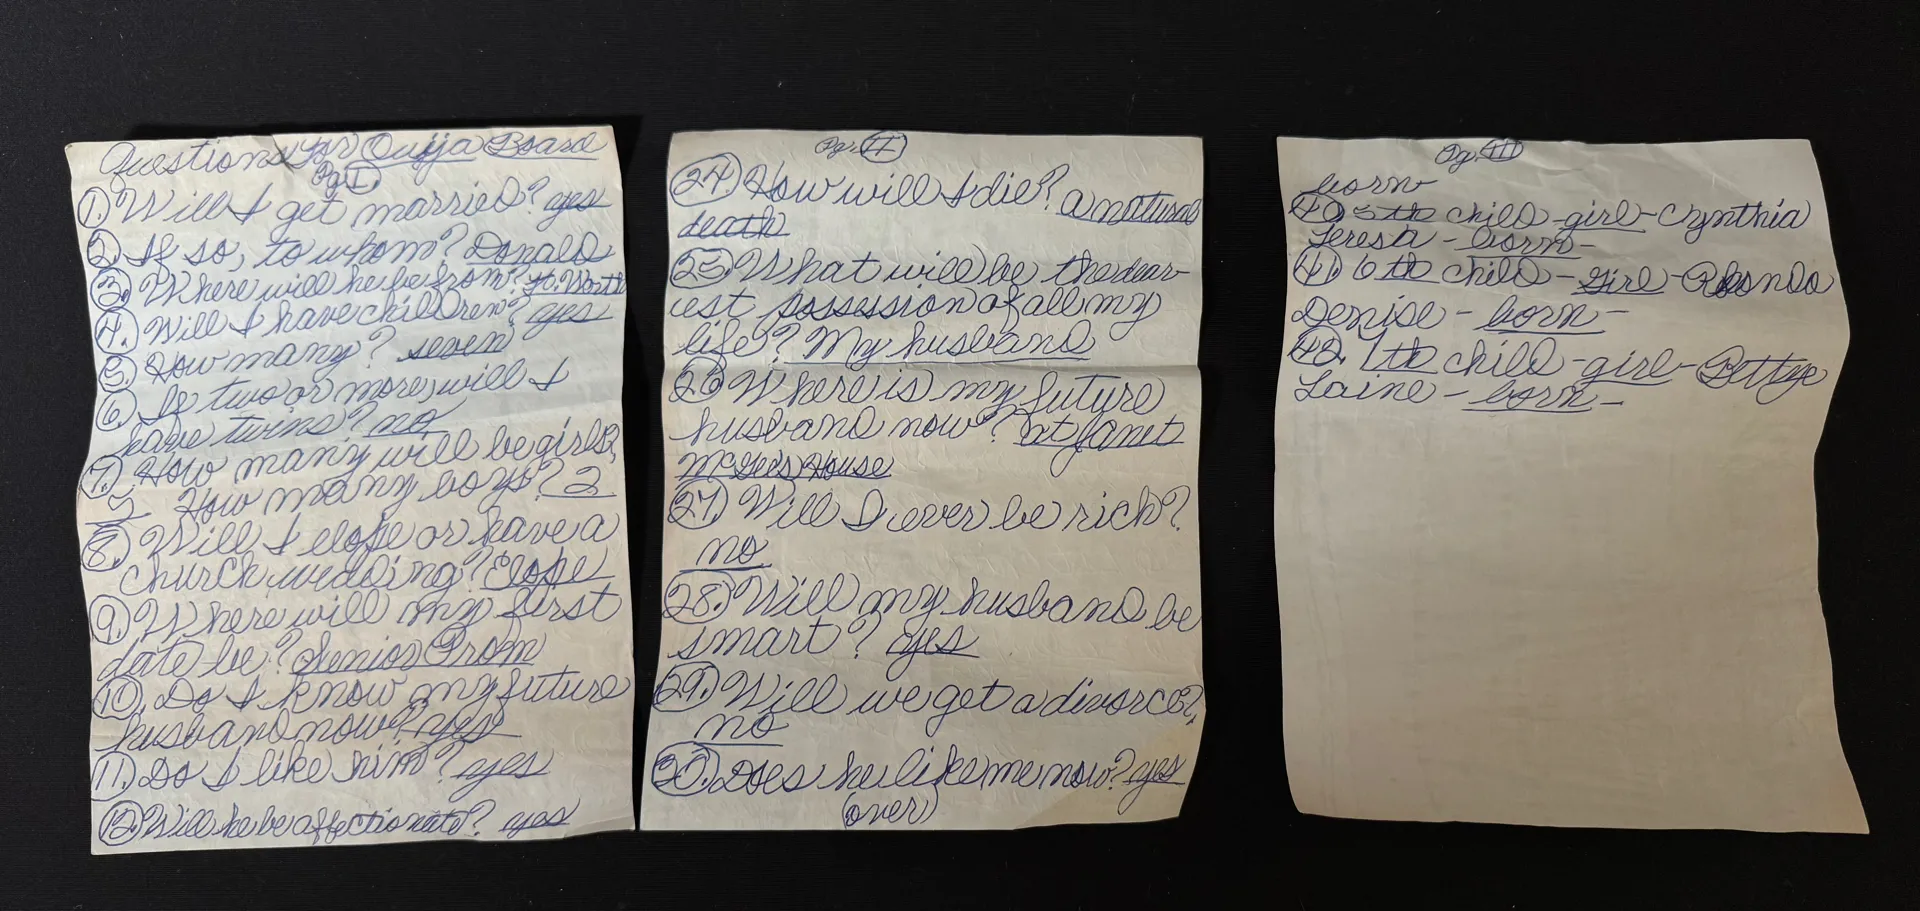 Questions for Ouija Board
Pg. I.
1. Will I get married? yes
2. If so, to whom? Donald
3. Where will he be from? Ft. Worth
4. Will I have children? yes
5. How many? seven
6. If two or more, will I
have twins? no
7. How many will be girls?
5 How many boys? 2
8. Will I elope or have a
church wedding? Elope
9. Where will my first
date be? Senior Prom
10. Do I know my future
husband now? yes
11. Do I like him? yes
12. Will he be affectionate? yes
Pg. II
24. How will I die? a natural
death
25. What will be the dear-
est possession of all my
life? My husband
26 Where is my future
husband now? at Janet
McGee's House
27. Will I ever be rich?
no
28. Will my husband be
smart? yes
29. Will we get a divorce?
no
30. Does he like me now? yes
(over)
Pg. III
born
40 5th child - girl - Cynthia
Teresa - born -
41. 6th child - Girl - Rhonda
Denise - born -
42. 7th child - girl - Bettye
Laine - born -